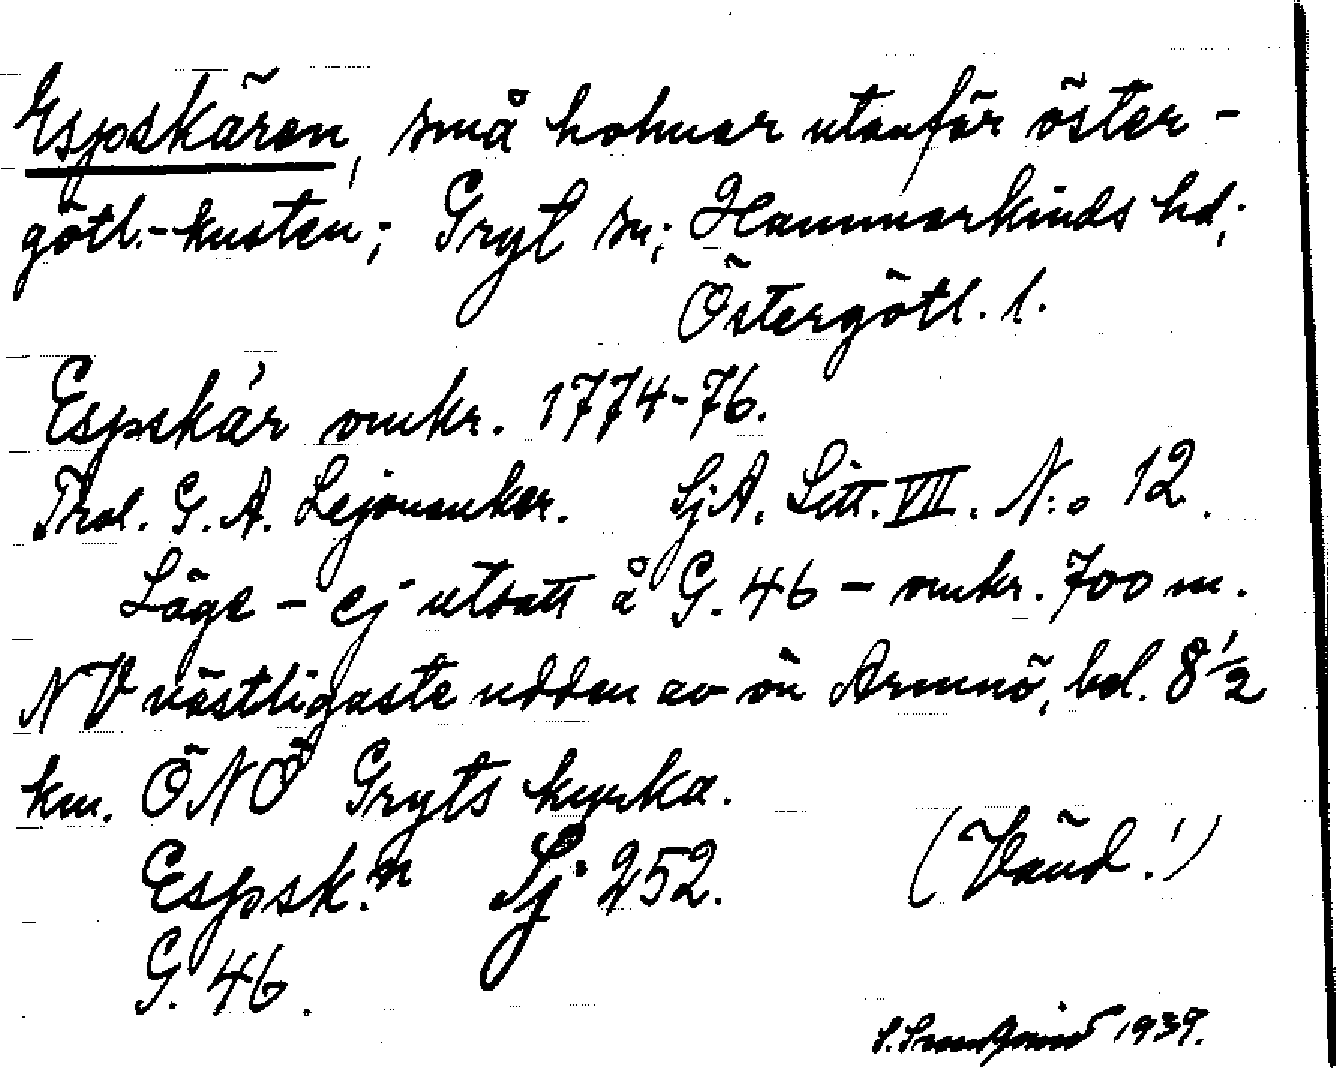 Espskären, små holmar utanför öster-
götl.-kusten; Gryt sn; Hammarkinds hd;
Östergötl. l.
Espskär omkr. 1774-76.
Thol. G. A. Lejonanker. SjA. Litt. VII. N:o 12.
Läge - ej utsatt å G. 46 - omkr. 700 m.
NV västligaste udden av ön Armnö, bel. 8 1/2
km. ÖNÖ Gryts kyrka.
Espsk:n Sj 252. (Vänd!)
G. 46.
1939.